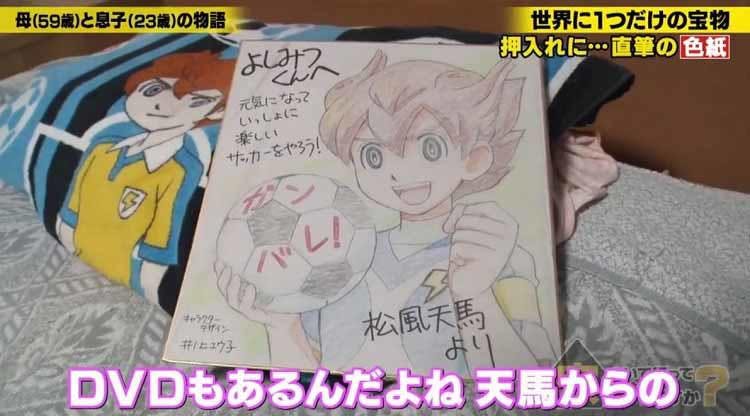 母(59歳)と息子(23歳)の物語
世界に1つだけの宝物
押入れに…直筆の色紙
よしみつ
くんへ
元気になって
いっしょに
楽しい
サッカーをやろう!
ガン
バレ!
キャラクター
デザイン
井上ユウ子
松風天馬
より
DVDもあるんだよね 天馬からの